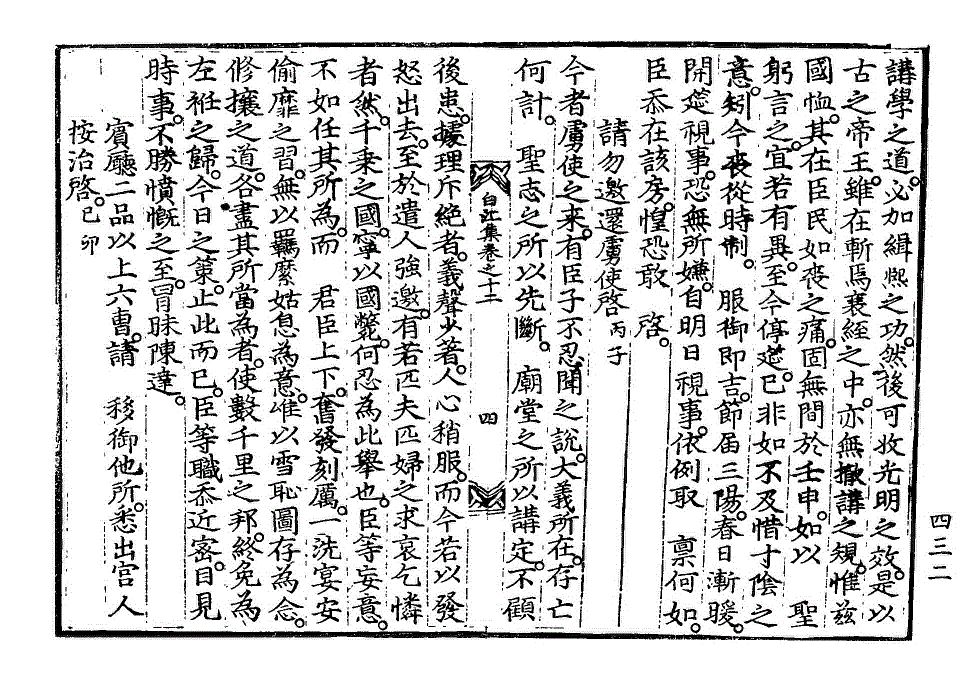 講學之道。必加緝熙之功。然後可收光明之效。是以
古之帝王。雖在斬焉衰絰之中。亦無撤講之規。惟玆
國恤。其在臣民如喪之痛。固無間於壬申。如以 聖
躬言之。宜若有異。至今停筵。已非如不及惜寸陰之
意。矧今喪從時制。 服御卽吉。節屆三陽。春日漸暖。
開筵視事。恐無所嫌。自明日視事。依例取 稟何如。
臣忝在該房。惶恐敢 啓。
請勿邀還虜使啓 丙子
今者虜使之來。有臣子不忍聞之說。大義所在。存亡
何計。 聖志之所以先斷。 廟堂之所以講定。不顧
白江集卷之十二
四
後患。據理斥絶者。義聲少著。人心稍服。而今若以發
怒出去。至於遣人強邀。有若匹夫匹婦之求哀乞憐
者然。千乘之國。寧以國斃。何忍爲此擧也。臣等妄意。
不如任其所爲。而 君臣上下。奮發刻厲。一洗宴安
偷靡之習。無以羈縻姑息爲意。惟以雪恥圖存爲念。
修攘之道。各盡其所當爲者。使數千里之邦。終免爲
左袵之歸。今日之策。止此而已。臣等職忝近密。目見
時事。不勝憤慨之至。冒昧陳達。
賓廳二品以上六曹。請 移御他所。悉出宮人
按治啓。己卯
四三二